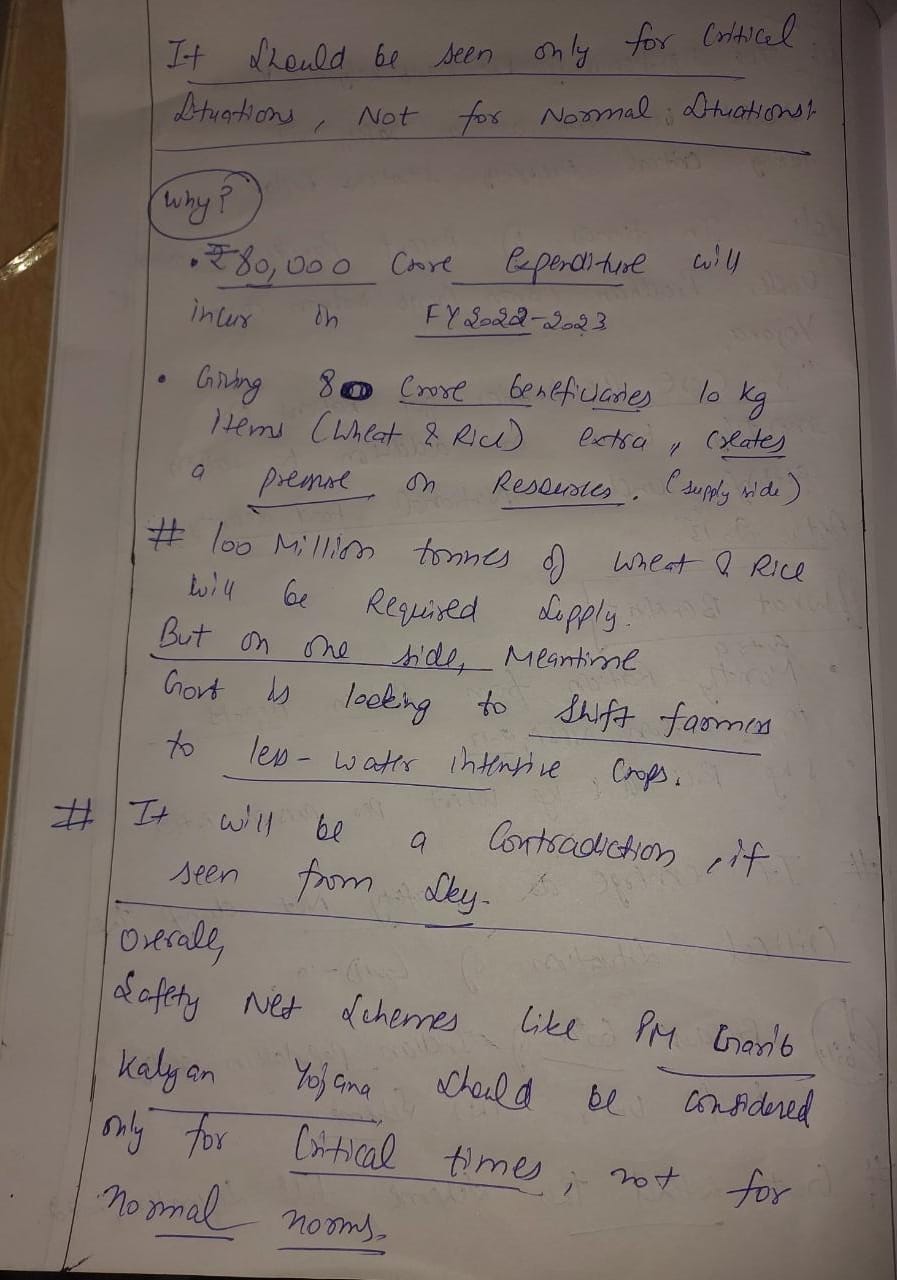 It should be seen only for Critical
Situations, Not for Normal Situations!
Why?
• ₹80,000 Crore Expenditure will
incur in FY 2022-2023
• Giving 80 Crore beneficiaries 10 kg
items (Wheat & Rice) extra, Creates
a pressure on Resources. (supply side)
# 100 Million tonnes of wheat & Rice
will be Required Supply.
But on one side, Meantime
Govt is looking to shift farmers
to less-water intensive Crops.
# It will be a Contradiction, if
seen from Sky.
Overall,
Safety Net Schemes like PM Garib
Kalyan Yojana should be considered
only for Critical times, not for
normal norms.